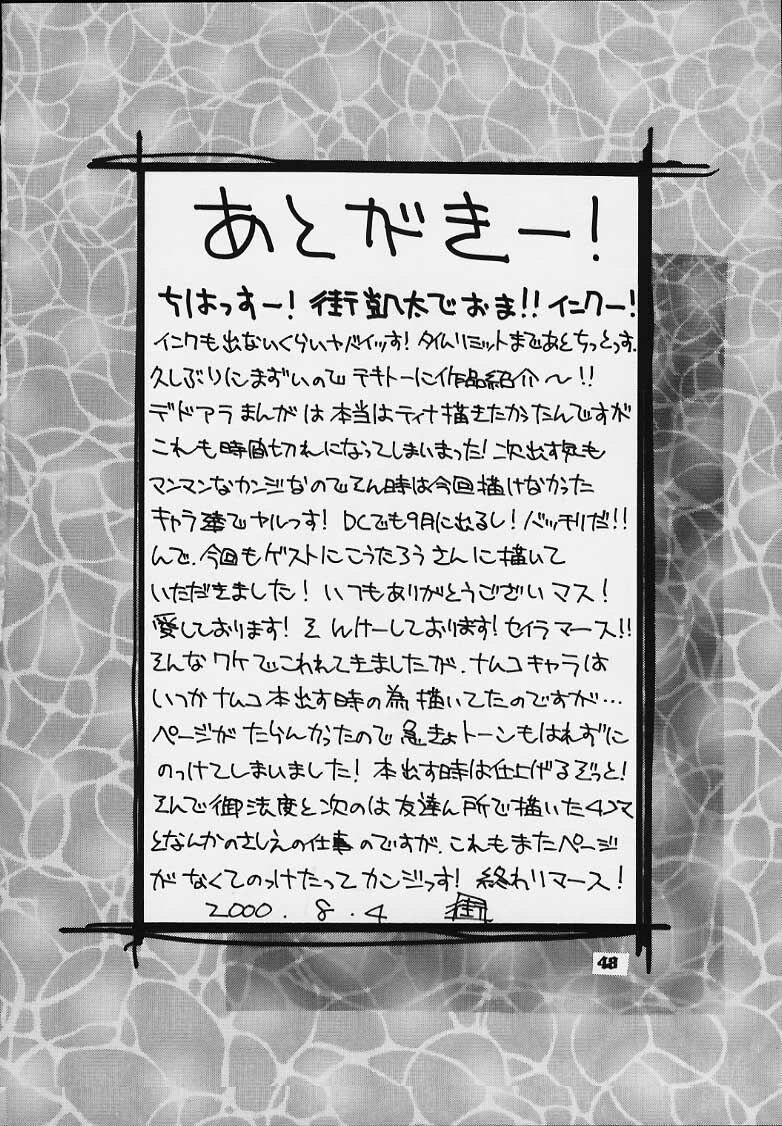 あとがきー!
ちはっすー! 街凱太でおま!! インクー!
インクも出ないくらいヤバイッす! タイムリミットまであとちっとっす.
久しぶりにまずいのでテキトーに作品紹介〜!!
デドアラまんがは本当はティナ描きたかったんですが
これも時間切れになってしまいまった! 次出す気も
マンマンなカンジなのでてん時は今回描けなかった
キャラ達でヤルっす! DCでも9月に出るし! バッチリだ!!
んで.今回もゲストにこうたろうさんに描いて
いただきました! いつもありがとうございマス!
愛しております! そんけーしております! セイラマース!!
そんなワケでこれれてきましたが.ナムコキャラは
いつかナムコ本出す時の為描いてたのですが…
ページがたらんかったので急きょトーンもはれずに
のっけてしまいました! 本出す時は仕上げるぞっと!
そんで御法度と次のは友達ん所で描いた4コマ
となんかのさしえの仕事のですが.これもまたページ
がなくてのっけたってカンジっす! 終わりマース!
2000.8.4 街
48